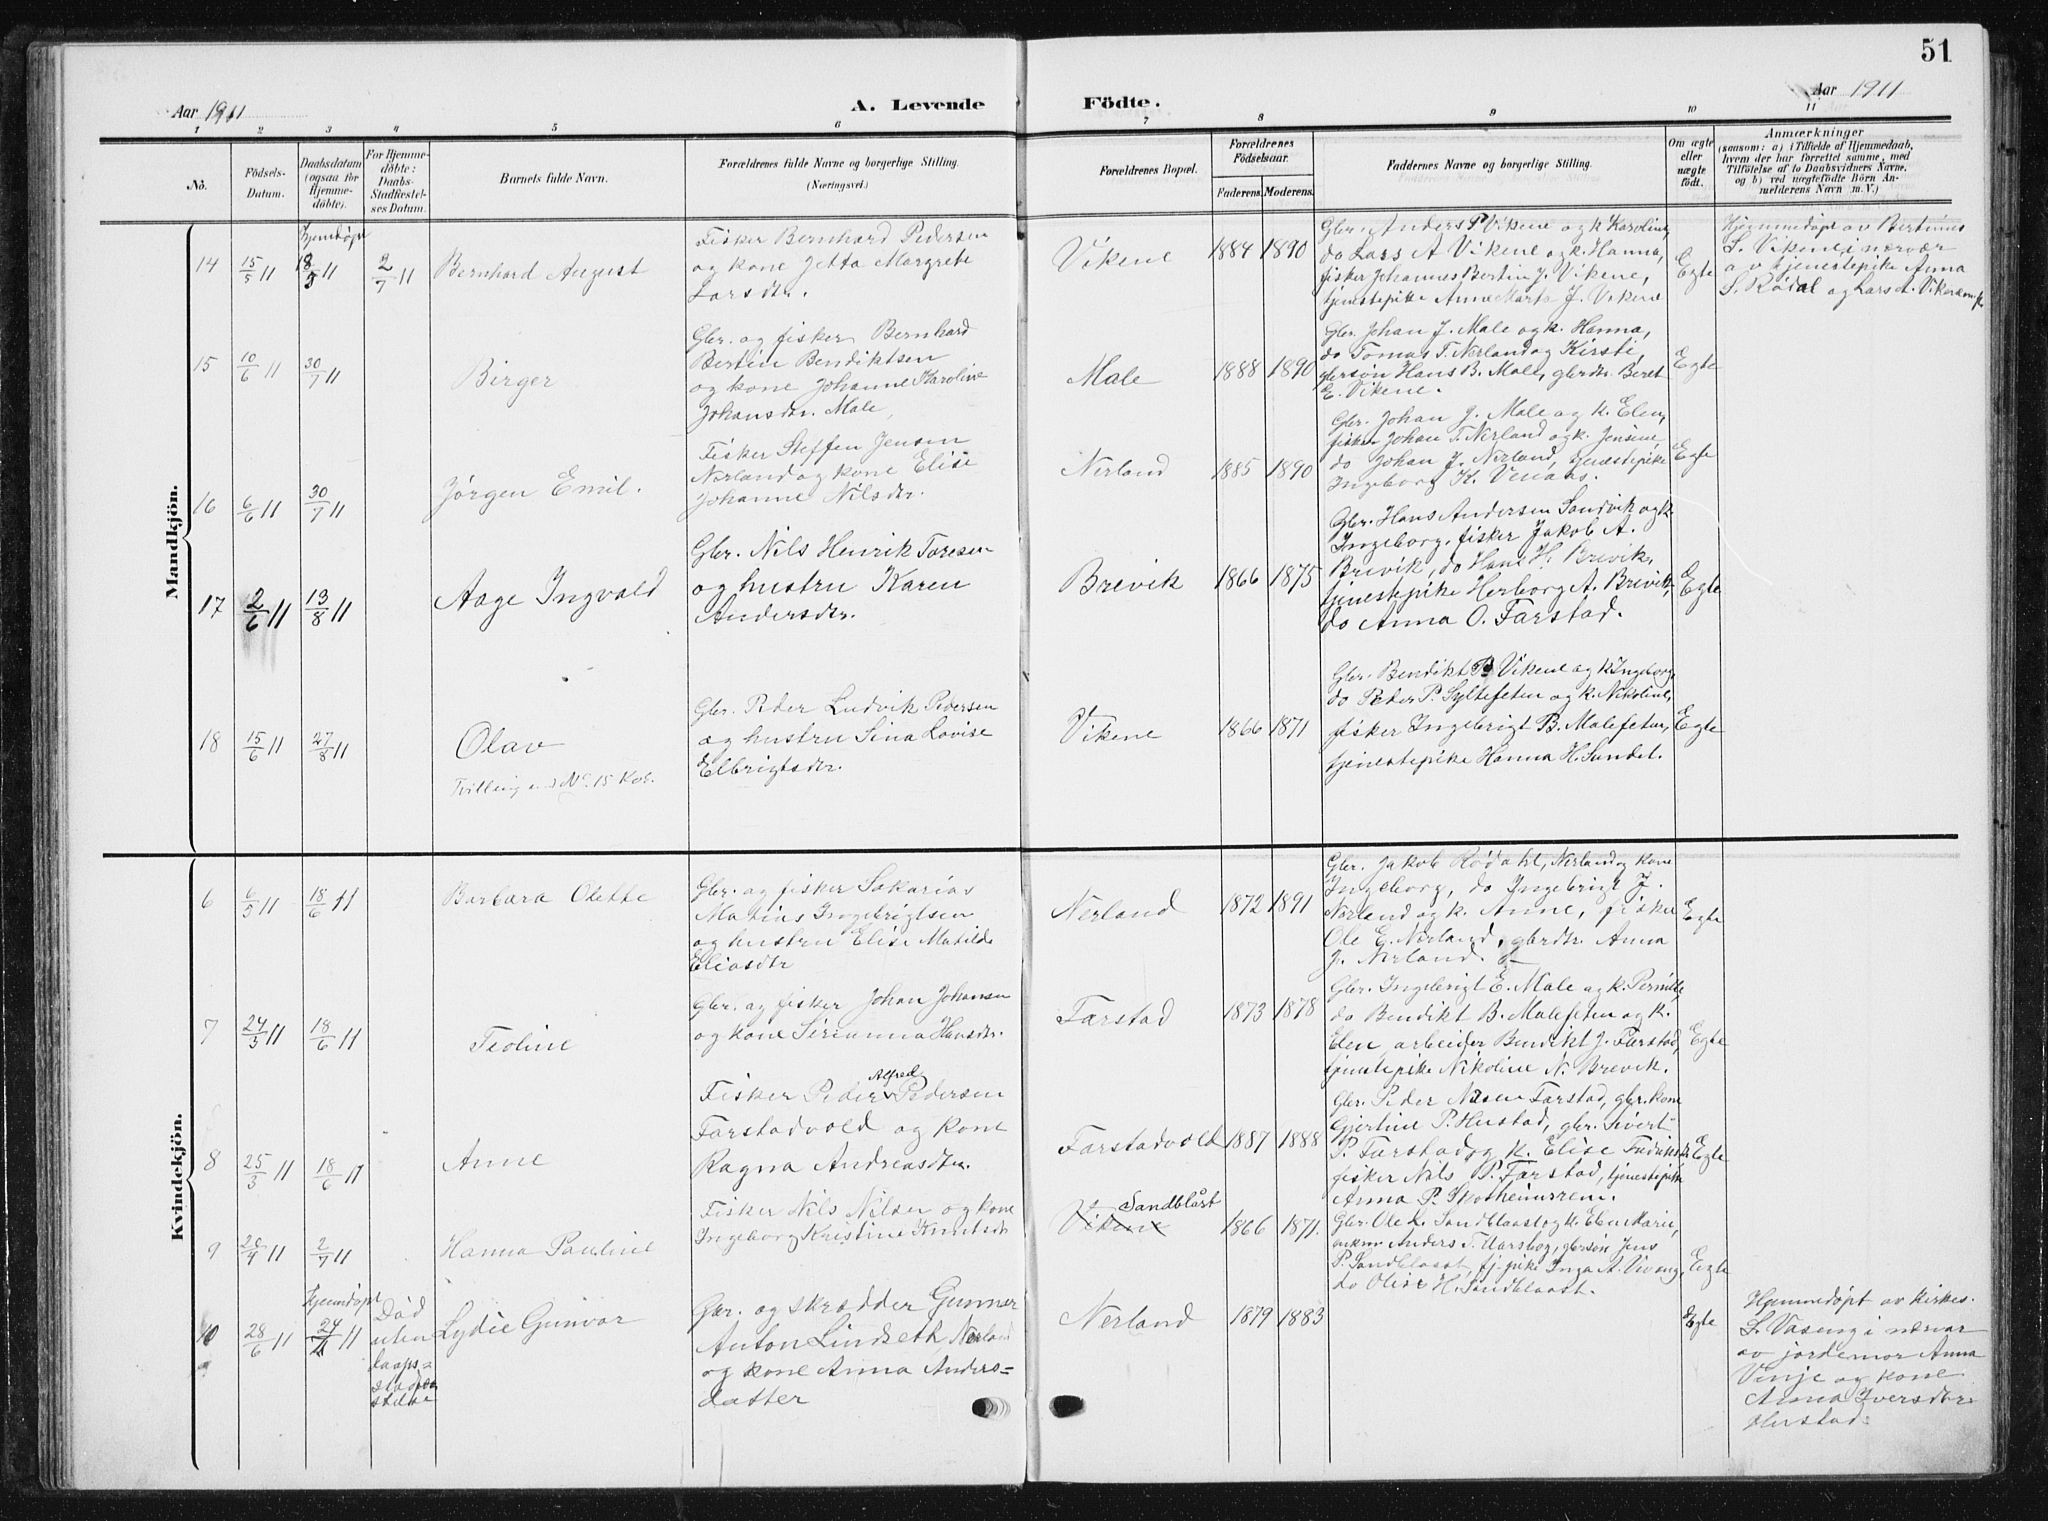 51
Aar 1911
A. Levende Födte.
Aar 1911
1 2 3 4 5 6 7 8 9 10 11
No.
Födsels-
Datum.
Daabsdatum
(ogsaa for
Hjemme-
döbte).
For Hjemme-
döbte:
Daabs-
Stadfæstel-
ses Datum.
Barnets fulde Navn.
Forældrenes fulde Navne og borgerlige Stilling.
(Næringsvei.)
Forældrenes Bopæl.
Forældrenes
Födselsaar.
Faderens. Moderens.
Faddernes Navne og borgerlige Stilling.
Om ægte
eller
uægte
födt.
Anmærkninger
(saasom: a) i Tilfælde af Hjemmedaab,
hvem der har forrettet samme, med
Tilföielse af to Daabsvidners Navne,
og b) ved uægtefödte Börn An-
melderens Navn m. V.)
Mandkjön.
14 15/5 11
Hjemdöpt
18/5 11
2/7 11
Bernhard August
Fisker Bernhard Pedersen
og kone Jetta Margrete
Larsdtr.
Vikene 1884 1890
Gbr. Anders P. Vikene og k. Karoline,
do Lars A Vikene og k. Hanna,
fisker Johannes Bertin J. Vikene,
tjenestepike Anne Marta J. Vikene
Egte
Hjemmedøpt av Bertinus
S. Vikene i nærvær
av tjenestepike Anna
S. Rødal og Lars A. Vikene
15 10/6 11 30/7 11
Birger
Gbr. og fisker Bernhard
Bertin Bendiktsen
og kone Johanne Karoline
Johansdtr. Male,
Male 1888 1890
Gbr. Johan J. Male og k. Hanna,
do Tomas T. Nerland og Kirsti,
gbrsøn Hans B. Male, gbrdtr. Beret
E. Vikene.
Egte
16 6/6 11 30/7 11
Jørgen Emil.
Fisker Steffen Jensen
Nerland og kone Elise
Johanne Nilsdtr.
Nerland 1885 1890
Gbr. Johan J. Male og k. Elen,
fisker Johan T. Nerland og k. Jensine,
do Johan J. Nerland, tjenestepike
Ingeborg K. Venaas.
Egte
17 2/6 11 13/8 11
Aage Ingvald
Gbr. Nils Henrik Toresen
og hustru Karen
Andersdtr.
Brevik 1866 1875
Gbr. Hans Andersen Sandvik og k.
Ingeborg, fisker Jakob A.
Brevik, do Hans H. Brevik,
tjenestepike Herborg A. Brevik,
do Anna O. Farstad.
Egte
18 15/6 11 27/8 11
Olav
Tvilling med No. 15 Kv.
Gbr. Peder Ludvik Pedersen
og hustru Sina Lovise
Elbrigtsdtr.
Vikene 1866 1871
Gbr. Bendikt B Vikene og k. Ingeborg,
do Peder P. Syltefeten og k. Nikoline,
fisker Ingebrigt B. Malefeten,
tjenestepike Hanna H. Sundet.
Egte
Kvindekjön.
6 6/5 11 18/6 11
Barbara Olette
Gbr. og fisker Sakarias
Matias Ingebrigtsen
og hustru Elise Matilde
Eliasdtr
Nerland 1872 1891
Gbr. Jakob Rødahl, Nerland og kone
Ingeborg, do Ingebrigt J.
Nerland og k. Anne, fisker
Ole E. Nerland, gbrdtr. Anna
J. Nerland.
Egte
7 24/5 11 18/6 11
Teoline
Gbr. og fisker Johan Johansen
og kone Serianna Hansdtr.
Farstad 1873 1878
Gbr. Ingebrigt E. Male og k. Pernille,
do Bendikt B. Malefeten og k.
Elen arbeider Bendikt J. Farstad,
tjenestepike Nikoline N. Brevik.
Egte
8 25/3 11 18/6 11
Anne
Alfred
Fisker Peder Pedersen
Farstadvold og kone
Ragna Andreasdtr.
Farstadvold 1887 1888
Gbr. Peder Nilsen Farstad, gbr. kone
Gjertine P. Hustad, gbr. Sivert
P. Farstad og k. Elise Fredriksdtr.
fisker Nils P. Farstad, tjenestepike
Anna P. Skotheimsrem.
Egte
9 20/4 11 2/7 11
Hanna Pauline
Fisker Nils Nilsen og kone
Ingeborg Kristine Knutsdtr
Sandblåst
Vikene
1866 1871.
Gbr. Ole L. Sandblaast og k. Elen Marie,
Anders T. Aarsbog, gbrsøn Jens
P. Sandblaast, tj. pike Inga A. Vevang,
do Olise H. Sandblaast.
Egte
10 28/6 11
Hjemdöpt
24/7 11
Död
uten
daaps-
stadfæ
stelse
Lydie Gunvor
Gbr. og skrædder Gunnar
Anton Lindseth, Nerland
og kone Anna Anders-
datter
Nerland 1879 1883
Egte
Hjemmedøpt av kirkes.
S. Vaseng i nærvær
av jordemor Anna
Vinje og kone
Anna Iversdtr.
Hustad.